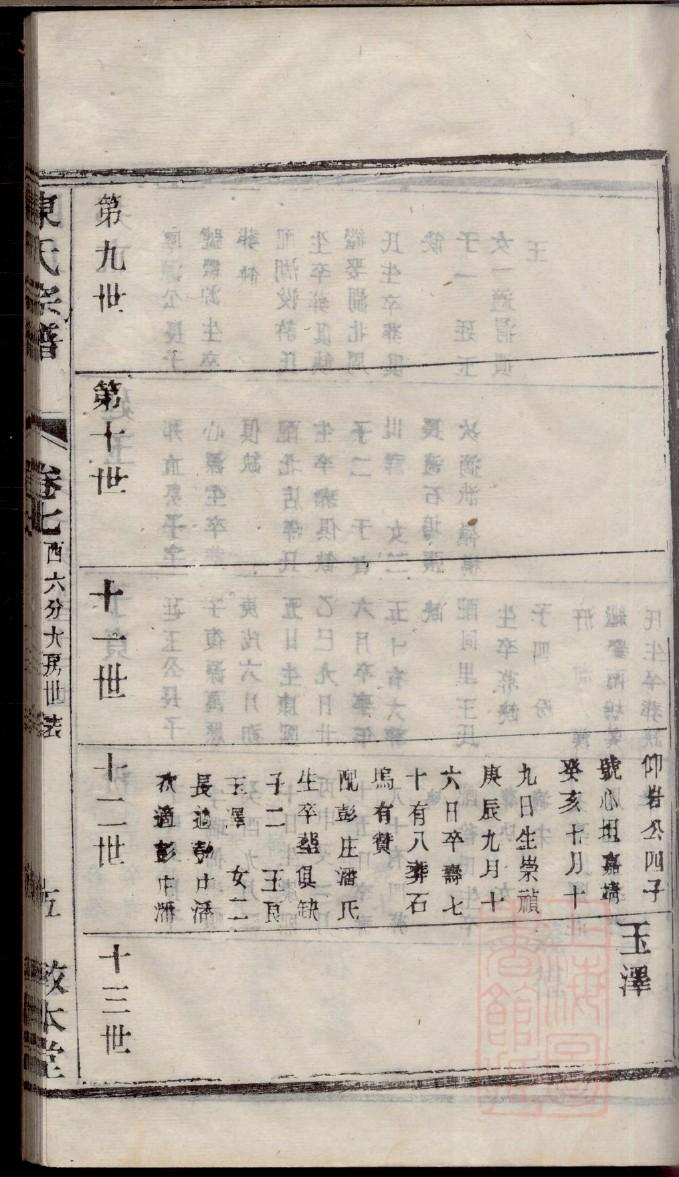 仰岩公四子
號心垣嘉靖
癸亥十月十
九日生崇禎
庚辰九月十
六日卒壽七
十有八葬石
塢有贊
配彭庄潘氏
生卒塟俱缺
子二 玉良
玉澤 女二
長適彭庄潘
次適彭庄潘
玉澤
第九世
第十世
十一世
十二世
十三世
陳氏宗譜
卷七
西六分大房世系
五
敦本堂